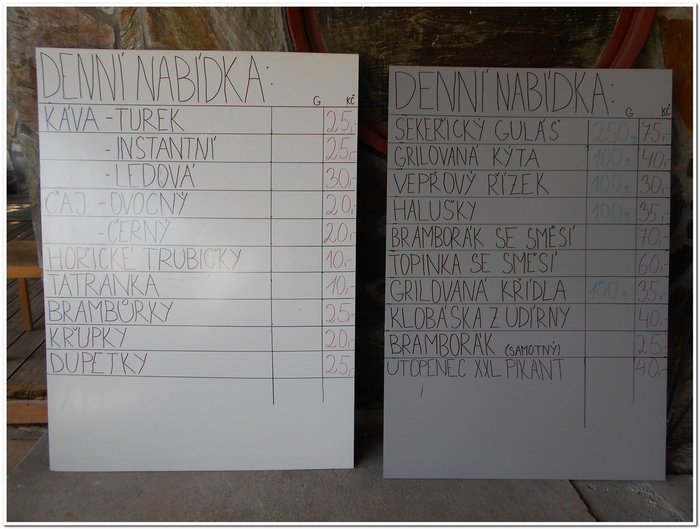 DENNÍ NABÍDKA:
G KČ
KÁVA - TUREK 25,-
- INSTANTNÍ 25,-
- LEDOVÁ 30,-
ČAJ - OVOCNÝ 20,-
- ČERNÝ 20,-
HOŘICKÉ TRUBIČKY 10,-
TATRANKA 10,-
BRAMBŮRKY 25,-
KŘUPKY 20,-
DUPETKY 25,-
DENNÍ NABÍDKA:
G KČ
SEKEŘICKÝ GULÁŠ 250g 75,-
GRILOVANÁ KÝTA 100g 40,-
VEPŘOVÝ ŘÍZEK 100g 30,-
HALUŠKY 100g 35,-
BRAMBORÁK SE SMĚSÍ 70,-
TOPINKA SE SMĚSÍ 60,-
GRILOVANÁ KŘÍDLA 100g 35,-
KLOBÁSKA Z UDÍRNY 40,-
BRAMBORÁK (SAMOTNÝ) 25,-
UTOPENEC XXL PIKANT 40,-